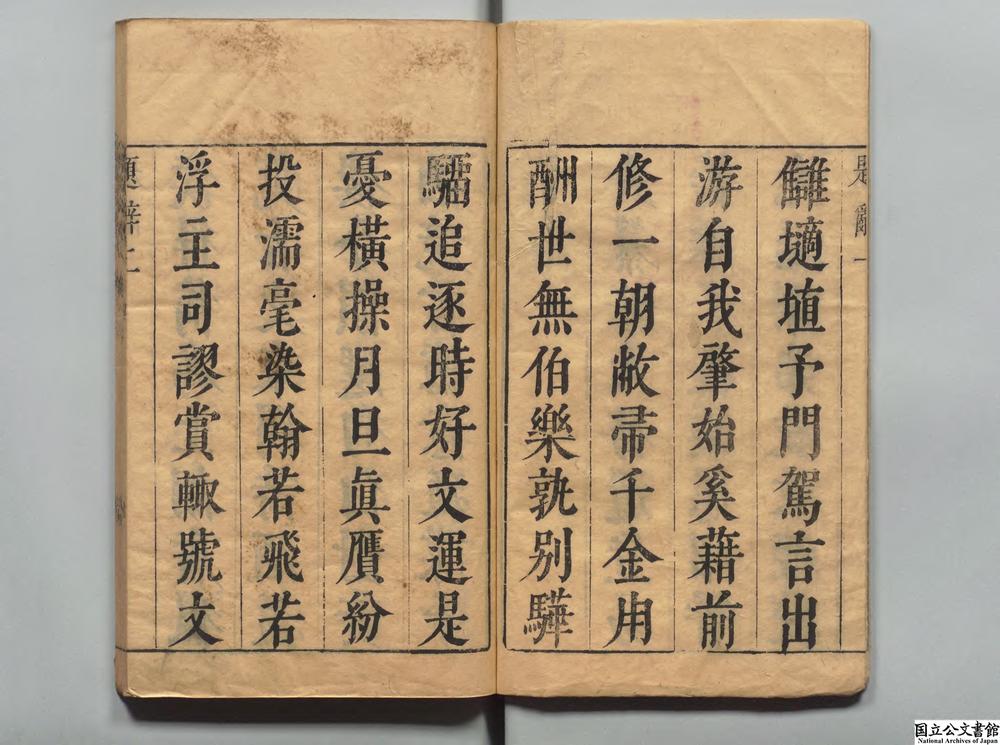 題辭 一
墑埴予門駕言出
游自我肇始奚藉前
修一朝敝帚千金用
酬世無伯樂孰别驊
騮追逐時好文運是
憂橫操月旦眞贋紛
投濡毫染翰若飛若
浮主司謬賞輙號文
題辭 二
国立公文書館
National Archives of Japan